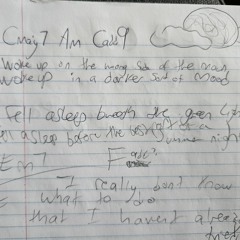 Cmaj7 Am Cadd9
Woke up on the wrong side of the moon
Woke up in a darker sort of mood
Fell asleep beneath the green light
asleep before the of a summer night
Em7 Fadd9
I really don't know
what to do
that I haven't already